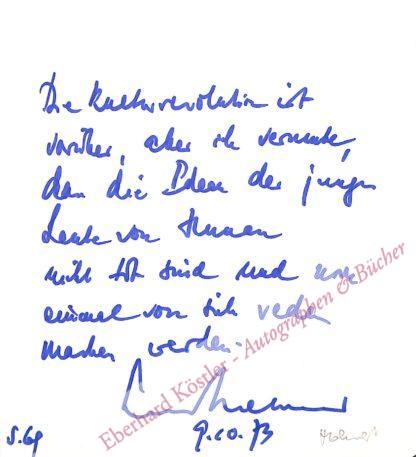 Die Kulturrevolution ist
vorüber, aber ich vermute,
dass die Ideen der jungen
Leute von Hunan
nicht tot sind und noch
einmal von sich reden
machen werden.
Eberhard Köstler - Autographen & Bücher
S. 69
9.10.73